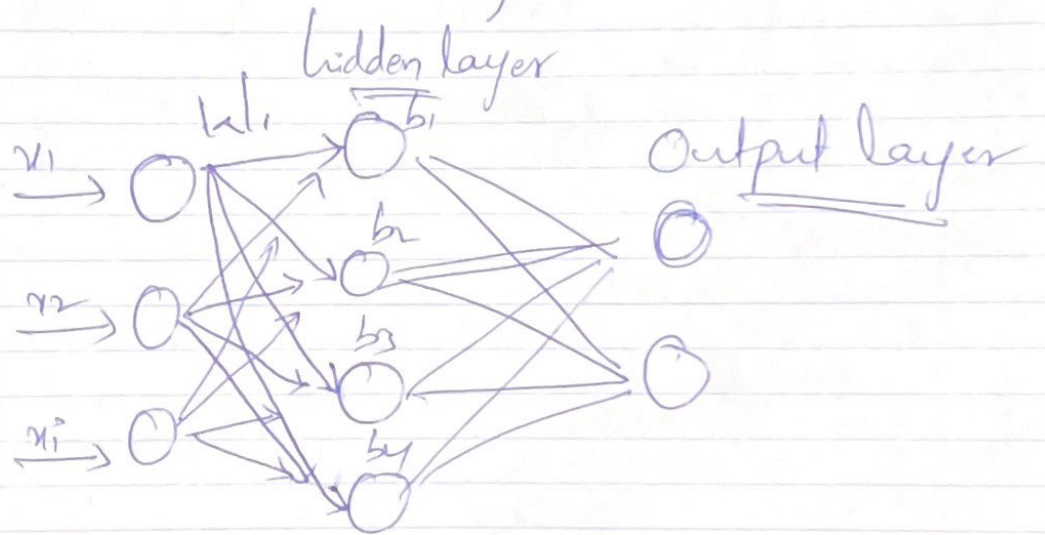 hidden layer
W1
b1
Output layer
x1
b2
x2
b3
xi
b4